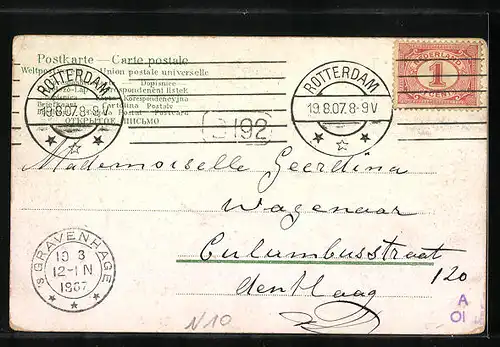 Postkarte — Carte postale
Weltpostverein Union postale universelle
Dopisnice
Levelező-Lap Korespondenční lístek
Korespondencyjna
Briefkaart Cartolina Postale
Postal Postcard
ОТКРЫТОЕ ПИСЬМО
ROTTERDAM
19.8.07.8-9V
192
ROTTERDAM
19.8.07.8-9V
NEDERLAND
1
CENT
Mademoiselle Geerdina
Wagenaar
Culumbusstraat
120
den Haag
'S GRAVENHAGE
19 8
12-1N
1907
N10
A
OI